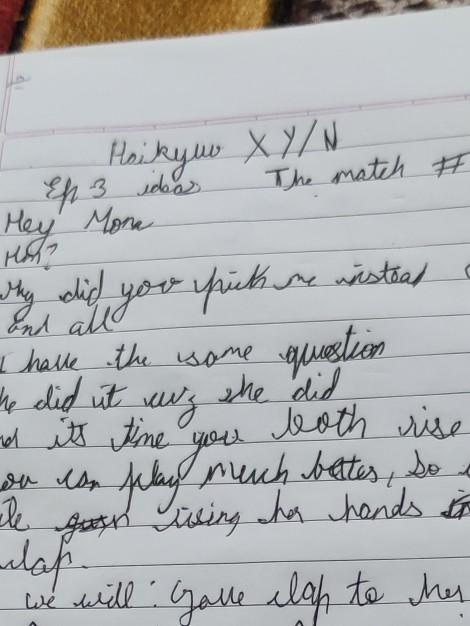 Haikyuu X Y/N
Ep 3 ideas The match #
Hey Mona
Hm?
why did you pick me instead
and all
I have the same question
he did it cuz she did
nd its time you both rise
ou can play much better, so
ile rising her hands in
clap.
we will : Gave clap to her